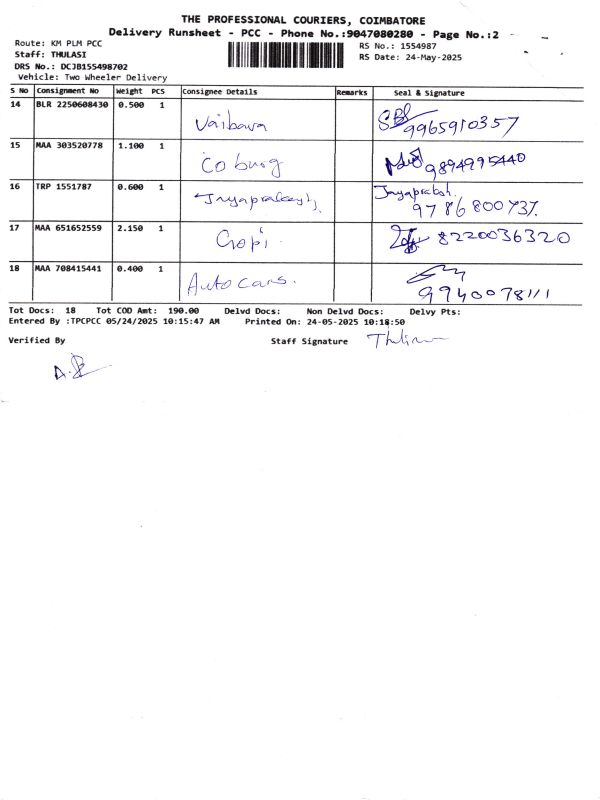 THE PROFESSIONAL COURIERS, COIMBATORE
Delivery Runsheet - PCC - Phone No.:9047080280 - Page No.:2
Route: KM PLM PCC
RS No.: 1554987
Staff: THULASI
RS Date: 24-May-2025
DRS No.: DCJB155498702
Vehicle: Two Wheeler Delivery
S No Consignment No Weight PCS Consignee Details Remarks Seal & Signature
14 BLR 2250608430 0.500 1
Vaibava 9965910357
15 MAA 303520778 1.100 1
Coburg 9894995440
16 TRP 1551787 0.600 1 Jayaprakash.
Jayaprakash,
17 MAA 651652559 2.150 1
Gopi. 8220036320
18 MAA 708415441 0.400 1
Autocars.
Tot Docs: 18 Tot COD Amt: 190.00 Delvd Docs: Non Delvd Docs: Delvy Pts:
Entered By :TPCPCC 05/24/2025 10:15:47 AM Printed On: 24-05-2025 10:18:50
Verified By Staff Signature